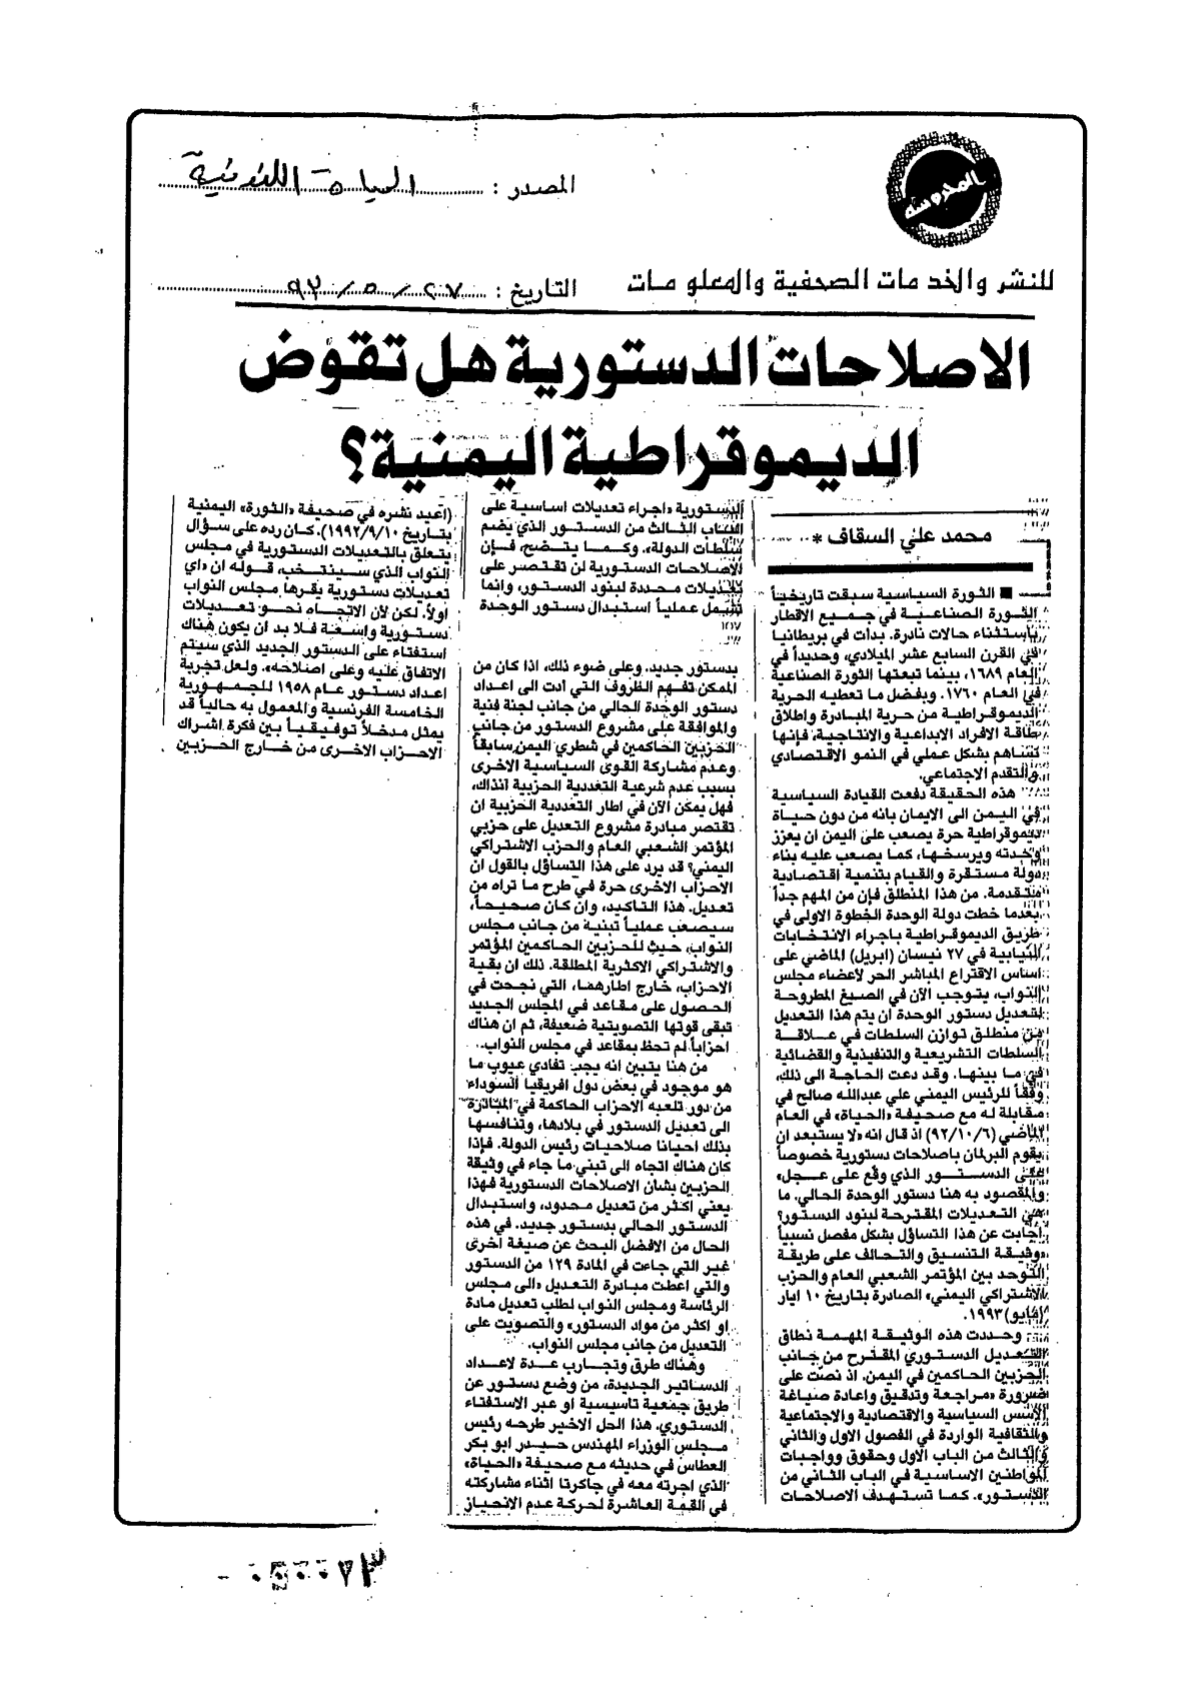 المحروسة
المصدر : الحياة اللندنية
للنشر والخدمات الصحفية والمعلومات
التاريخ : ٢٧ / ٥ / ٩٣
الاصلاحات الدستورية هل تقوّض
الديموقراطية اليمنية؟
محمد علي السقاف *
■ الثورة السياسية سبقت تاريخياً
الثورة الصناعية في جميع الاقطار
باستثناء حالات نادرة. بدأت في بريطانيا
في القرن السابع عشر الميلادي، وحديداً في
العام ١٦٨٩، بينما تبعتها الثورة الصناعية
في العام ١٧٦٠. وبفضل ما تعطيه الحرية
الديموقراطية من حرية المبادرة واطلاق
طاقة الافراد الابداعية والانتاجية، فإنها
تساهم بشكل عملي في النمو الاقتصادي
والتقدم الاجتماعي.
هذه الحقيقة دفعت القيادة السياسية
في اليمن الى الايمان بانه من دون حياة
ديموقراطية حرة يصعب على اليمن ان يعزز
وحدته ويرسخها، كما يصعب عليه بناء
دولة مستقرة والقيام بتنمية اقتصادية
متقدمة. من هذا المنطلق فإن من المهم جداً
بعدما خطت دولة الوحدة الخطوة الاولى في
طريق الديموقراطية باجراء الانتخابات
النيابية في ٢٧ نيسان (ابريل) الماضي على
اساس الاقتراع المباشر الحر لاعضاء مجلس
النواب، يتوجب الآن في الصيغ المطروحة
لتعديل دستور الوحدة ان يتم هذا التعديل
من منطلق توازن السلطات في علاقة
السلطات التشريعية والتنفيذية والقضائية
في ما بينها. وقد دعت الحاجة الى ذلك،
وفقاً للرئيس اليمني علي عبدالله صالح في
مقابلة له مع صحيفة «الحياة» في العام
الماضي (٩٢/١٠/٦) اذ قال انه «لا يستبعد ان
يقوم البرلمان باصلاحات دستورية خصوصاً
على الدستور الذي وقّع على عجل»
والمقصود به هنا دستور الوحدة الحالي. ما
هي التعديلات المقترحة لبنود الدستور؟
اجابت عن هذا التساؤل بشكل مفصل نسبياً
«وثيقة التنسيق والتحالف على طريقة
التوحد بين المؤتمر الشعبي العام والحزب
الاشتراكي اليمني» الصادرة بتاريخ ١٠ ايار
(مايو) ١٩٩٣.
وحددت هذه الوثيقة المهمة نطاق
التعديل الدستوري المقترح من جانب
الحزبين الحاكمين في اليمن. اذ نصت على
ضرورة «مراجعة وتدقيق واعادة صياغة
الأسس السياسية والاقتصادية والاجتماعية
والثقافية الواردة في الفصول الاول والثاني
والثالث من الباب الاول وحقوق وواجبات
المواطنين الاساسية في الباب الثاني من
الدستور». كما تستهدف الاصلاحات
الدستورية «اجراء تعديلات اساسية على
الباب الثالث من الدستور الذي يضم
سلطات الدولة». وكما يتضح، فإن
الاصلاحات الدستورية لن تقتصر على
تعديلات محددة لبنود الدستور، وانما
تشمل عملياً استبدال دستور الوحدة
بدستور جديد. وعلى ضوء ذلك، اذا كان من
الممكن تفهم الظروف التي أدت الى اعداد
دستور الوحدة الحالي من جانب لجنة فنية
والموافقة على مشروع الدستور من جانب
الحزبين الحاكمين في شطري اليمن سابقاً
وعدم مشاركة القوى السياسية الاخرى
بسبب عدم شرعية التعددية الحزبية آنذاك،
فهل يمكن الآن في اطار التعددية الحزبية ان
تقتصر مبادرة مشروع التعديل على حزبي
المؤتمر الشعبي العام والحزب الاشتراكي
اليمني؟ قد يرد على هذا التساؤل بالقول ان
الاحزاب الاخرى حرة في طرح ما تراه من
تعديل. هذا التاكيد، وان كان صحيحاً،
سيصعب عملياً تبنيه من جانب مجلس
النواب، حيث للحزبين الحاكمين المؤتمر
والاشتراكي الاكثرية المطلقة. ذلك ان بقية
الاحزاب، خارج اطارهما، التي نجحت في
الحصول على مقاعد في المجلس الجديد
تبقى قوتها التصويتية ضعيفة، ثم ان هناك
احزاباً لم تحظ بمقاعد في مجلس النواب.
من هنا يتبين انه يجب تفادي عيوب ما
هو موجود في بعض دول افريقيا السوداء
من دور تلعبه الاحزاب الحاكمة في المبادرة
الى تعديل الدستور في بلادها، وتنافسها
بذلك احيانا صلاحيات رئيس الدولة. فإذا
كان هناك اتجاه الى تبني ما جاء في وثيقة
الحزبين بشان الاصلاحات الدستورية فهذا
يعني اكثر من تعديل محدود، واستبدال
الدستور الحالي بدستور جديد. في هذه
الحال من الافضل البحث عن صيغة اخرى
غير التي جاءت في المادة ١٢٩ من الدستور
والتي اعطت مبادرة التعديل «الى مجلس
الرئاسة ومجلس النواب لطلب تعديل مادة
او اكثر من مواد الدستور» والتصويت على
التعديل من جانب مجلس النواب.
وهناك طرق وتجارب عدة لاعداد
الدساتير الجديدة، من وضع دستور عن
طريق جمعية تاسيسية او عبر الاستفتاء
الدستوري. هذا الحل الاخير طرحه رئيس
مجلس الوزراء المهندس حيدر ابو بكر
العطاس في حديثه مع صحيفة «الحياة»
الذي اجرته معه في جاكرتا اثناء مشاركته
في القمة العاشرة لحركة عدم الانحياز
(اعيد نشره في صحيفة «الثورة» اليمنية
بتاريخ ١٩٩٢/٩/١٠). كان رده على سؤال
يتعلق بالتعديلات الدستورية في مجلس
النواب الذي سينتخب، قوله ان «اي
تعديلات دستورية يقرها مجلس النواب
اولاً. لكن لأن الاتجاه نحو تعديلات
دستورية واسعة فلا بد ان يكون هناك
استفتاء على الدستور الجديد الذي سيتم
الاتفاق عليه وعلى اصلاحه». ولعل تجربة
اعداد دستور عام ١٩٥٨ للجمهورية
الخامسة الفرنسية والمعمول به حالياً قد
يمثل مدخلاً توفيقياً بين فكرة اشراك
الاحزاب الاخرى من خارج الحزبين